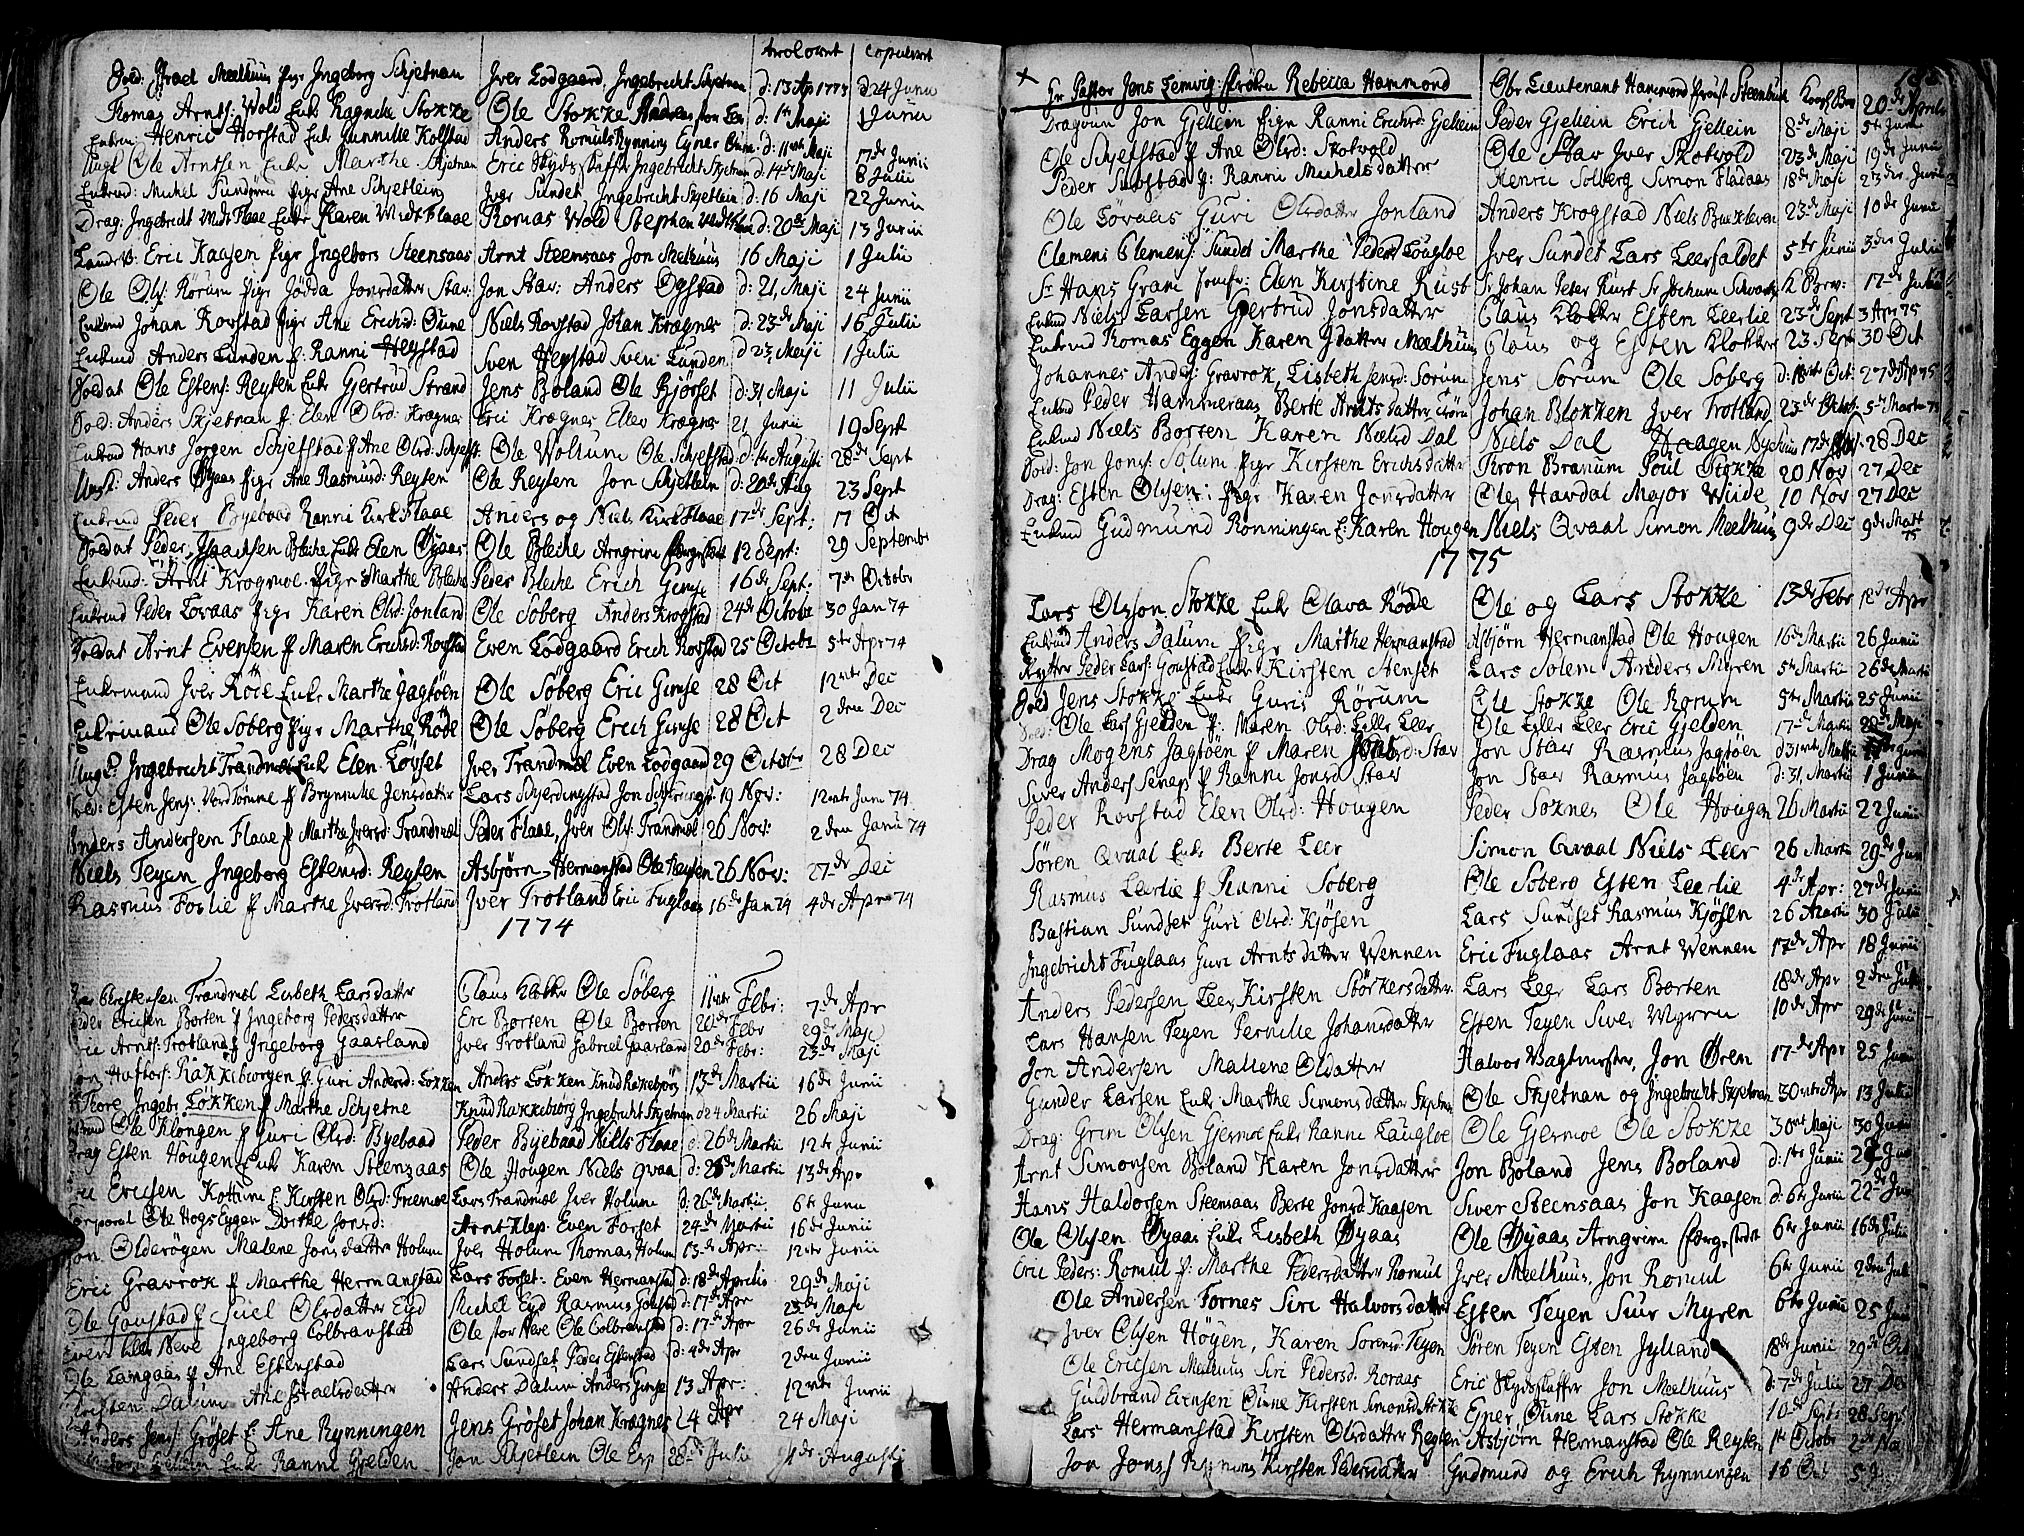 Trolovet Copuleret
Sold: Israel Meelhuus pige Ingeborg Schjetnan Iver Lodgaard Ingebrecht Skjetnan d: 13 Ap 1773 d 24 Junii
Thomas Arntf: Wold Enke Ragnele Stokke Ole Stokke d: 1te Maji 1 Junii
Henric Horstad Enk Gunnille Kolstad Anders Romuls Rynning d: 11te Maji 17de Junii
Ungk Ole Arntsen Enke Marthe Skjetnan Eric Skydsskaffer Ingebrecht Skjetnan d: 14de Maji 8 Julii
Enkem: Michel Sundet pige Ane Schjetlein Iver Sundet Ingebrecht Skjetlein d: 16 Maji 22 Junii
Drag: Ingebrict Midt Flaae Enke Karen Midt Flaae Thomas Wold Stephen d: 20de Maji 13 Junii
Landev: Eric Kaasen pige Ingebor Steensaas Arnt Steensaas Jon Melhuus 16 Maji 1 Julii
Ole Ols: Rørum pige Jødda Jonsdatter Stav: Jon Stav: Anders Øgstad d: 21 Maji 24 Junii
Enkmd Johan Rovstad pige Ane Erichsd: Øune Niels Rovstad Johan Krægnes d: 23de Maji 16 Julii
Enkmd Anders Lunden p: Ranni Heystad Sven Heystad Sven Lunden d 23 Meiji 1 Julii
Soldat Ole Estens: Reyten Enk Gjertrud Strand Jens Boland Ole Bjørset d: 31 Maji 11 Julii
Sold: Anders Skjetnan p Elen Olsd: Krægnes Eric Krægnes Ellev Krægnes 21 Junii 19 Sept
Enkmd Hans Jørgen Schjefstad p Ane Olsd: Ole Wollum Ole Schjefstad d: 1te Augusti 28de Sept
Ungk: Anders Øyaas pige Ane Rasmusd: Reyten Ole Reyten Jon Schjetlein d: 20de Aug 23 Sept
Enkmd Peder Byebaad Ranni Kirk Flaae Anders og Niels Kirk Flaae 17de Sept: 17 Oct
Soldat Peder Isaachsen Bleike Enk Elen Øyaas Ole Bleike Arngrim 12 Sept: 29 Septembr
Enkmd: Arnt Krogmoe pige Marthe Bleike Peder Bleike Erich Gimse 16de Sept: 7de Octobr
Enkmd Peder Lovaas pige Karen Olsd: Jonland Ole Soberg Anders Krogstad 24de Octobr 30 Jan 74
Soldat Arnt Evensen p Maren Erichsd: Rovstad Even Lodgaard Erich Rovstad 25 Octobr 5te Apr 74
Enkemand Iver Röe Enke Marthe Jagtøen Ole Søberg Eric Gimse 28 Oct 12te Dec
Enkemand Ole Soberg pige Marthe Røde Ole Søberg Erich Gimse 28 Oct 2den Dec
Ungk: Ingebrecht Trandmæl Enk Elen Løvset Iver Trandmæl Even Lodgaard 29 Octobr 28 Dec
Sold: Esten Jens: p Brynnilde Jensdatter Lars Schjerdingstad Jon 19 Nov: 12te Janu 74
Anders Andersen Flaae p Marthe Iversd: Trandmæl Peder Flaae, Iver Ols: Trandmæl 26 Nov: 2den Janu 74
Niels Teyen Ingeborg Estensd: Reyten Asbjørn Hermanstad Ole Reyten 26 Nov: 27de Dec
Rasmus Foslie p Marthe Iversd: Trotland Iver Trotland Eric Fuglaas 16de Jan 74 4de Apr 74
1774
Christensen Trandmæl Lisbeth Larsdatter Claus Klokker Ole Søberg 11te Febr: 7de Apr
Ericsen Borten p Ingeborg Pedersdatter Eric Borten Ole Borten 20de Febr 29de Maji
Arntf: Trotland p Ingeborg Gaasland Iver Trotland Gabriel Gaarland 20de Febr: 23de Maji
Rakkibiørgen p Guri Andersd: Løkken Anders Løkken Knud Rakkebjørg 13de Martii 16de Junii
Thore Ingebr: Løkken p Marthe Schjetne Knud Rakkebjørg Ingebricht Skjetnan d 24 Martii 26 Maji
Ole Klongen p Guri Olsd: Byebaad Peder Byebaad Niels Flaae d: 26de Martii 12te Junii
Drag Esten Hougen Enk Karen Steensaas Ole Hougen Niels Qvaal d: 26de Martii 13de Apr
Ericsen Kottum E: Kirsten Olsd: Lars Trandmæl Iver Holum d: 26de Martii 6te Junii
Corporal Ole Hogs Eggen Dorthe Jonsd: Arnt Klep Even Forset 24de Martii 16de Junii
Olderøgen Malene Jonsdatter Holum Iver Holum Thomas Holum 13de Apr: 12te Junii
Eric Gravrok p Marthe Herrmanstad Lars Forset: Even Hermanstad d: 18de Aprilis 29de Maji
Ole Gaustad p Siel Olsdatter Eyd Michel Eyd Rasmus Gaustad d: 17de Apr 23de Maji
Even lille Neve Ingeborg Colbranstad Ole stor Neve Ole Colbranstad d: 17de Apr 26de Junii
Ole Langaas p Ane Estenstad Lars Sundset Peder Estenstad d: 4de Apr 2den Junii
Christen Dalum Ane Israelsdatter Anders Dalum Anders Gimse 13 Apr: 12te Junii
Anders Jens: Grøset E: Ane Rynningen Jens Grøset Johan Krægnes 24 Apr 24 Maji
Enk Ranni Gjelden Jon Skjetlein Ole Esp 28de Julii 21de Augusti
Hr Pastor Jens Lemvig Frøken Rebecca Hammond Obr Lieutenant Hammond Provst Steenbuch 20de Aprilis
Dragoun Jon Gjellein pige Ranni Erichsd: Gjellein Peder Gjellein Erich Gjellein 8de Maji 5te Junii
Ole Schjefstad p Ane Olsd: Skotvold Ole Stav Iver Skotvold 23de Maji 19de Junii
Peder Substad p: Ranni Michelsdatter Henric Solberg Simon Fladaas 18de Maji 23de Junii
Ole Lovaas Guri Olsdatter Jonland Anders Krogstad Niels Buckleven 23de Maji 10de Junii
Clemen Clemens: Sundet Marthe Peders Laugloe Iver Sundet Lars Leerfaldet 5te Junii 3de Julii
Sr Hans Gram Jomfr: Elen Kirstine Rust Sr Johan Peter Rust Sr Jochum Schwartz K Brev: 17de Julii
Enkmd Niels Larsen Gjertrud Jonsdatter Claus Klokker Esten Leerlie 23de Sept 3 Apr 75
Enkmd Thomas Eggen Karen Jdatter Meelhuus Claus og Esten Klokker 23 Sept 30 Oct
Johannes Anders: Gravrok, Lisbeth Jensd: Sorum Jens Sorum Ole Soberg d: 18te Oct: 27de Apr 75
Enkmd Peder Hammeraas Berte Arntsdatter Johan Blokken Iver Trotland 23de Octob: 5te Martii 75
Enkmd Niels Borten Karen Nielsd Dal Niels Dal Haagen Nyehuus 17de 28 Dec
Sold: Jon Jons: Solum pige Kirsten Erichsdatter Tron Branum Poul Stokke 20 Nov 27 Dec
Drag: Esten Olsen pige Karen Jonsdatter Ole Havdal Major Wiide 10 Nov 27 Dec
Enkmd Gudmund Rønningen E: Karen Hougen Niels Qvaal Simon Meelhuus 9de Dec 9de Mart 75
1775
Lars Olsson Stokke Enk Olava Rødde Ole og Lars Stokke 13de Febr 12de Apr
Enkmd Anders Dalum pige Marthe Hermanstad Asbjørn Hermanstad Ole Hougen 16de Martii 26 Junii
Rytter Peder Lars: Goustad Enk Kirsten Henset Lars Solem Anders Myren 5te Martii 26de Martii
Sold Jens Stokke Enk Guri Rørum Ole Stokke Ole Rorum 5te Martii 25 Junii
Ole Lars Gjelden p: Maren Olsd: Lille Leer Ole Lille Leer Eric Gjelden 17de Martii 28de Maji
Drag Mogens Jagtøen p Maren Stav Jon Stav Rasmus Jagtøen d 31te Martii
Siver Anders p Ranni Jonsd Stav Jon Stav Rasmus Jagtøen d: 31 Martii 1 Junii
Peder Rovstad Elen Olsd: Hougen Peder Soknes Ole Hougen 26 Martii 22 Junii
Søren Qvaal Enk Berte Leer Simon Qvaal Niels Leer 26 Martii 29de Jun
Rasmus Leerlie p Ranni Soberg Ole Soberg Esten Leerlie 4de Apr: 27de Junii
Bastian Sundset Guri Olsd: Kjøsen Lars Sundset Rasmus Kjøsen 26 Martii 30 Julii
Ingebricht Fuglaas Guri Arntsdatter Wennen Eric Fuglaas Arnt Wennen 17de Apr 18 Junii
Anders Pedersen Leer Kirsten Størkersdatter Lars Leer Lars Borten 18de Apr 2den Julii
Lars Hansen Teyen Pernilie Johansdatter Esten Teyen Siver Myren 10de Apr 29de Junii
Jon Andersen Mallene Oldatter Halvor Vagtmester, Jon Øren 17de Apr 25 Junii
Gunder Larsen Enk: Marthe Simonsdatter Ole Skjetnan og Ingebricht Skjetnan 30te Apr 13 Julii
Drag: Grim Olsen Gjermoe Enk Ranni Laugloe Ole Gjermoe Ole Stokke 30te Maji 30 Junii
Arnt Simonsen Boland Karen Jonsdatter Jon Boland Jens Boland d: 1te Junii
Hans Haldorsen Steensaas Berte Jonsd Kaasen Siver Steensaas Jon Kaasen d: 6te Junii 22de Jun
Ole Olsen Øyaas Enk Lisbeth Øyaas Ole Øyaas Arngrim 6te Junii 16de Julii
Eric Peders: Romul p: Marthe Pedersdatter Romul Iver Meelhuus, Jon Romul 6te Junii 2den Jul
Ole Andersen Fornes Siri Halvorsdatter Esten Teyen Siur Myren 6te Junii 25 Jun
Iver Olsen Höyen, Karen Sorensd: Teyen Søren Teyen Esten Jylland 18de Junii 29de Oct
Ole Ericsen Meelhuus Siri Pedersd: Roraas Eric Skydsskaffer Jon Meelhuus d: 7de Julii 27 De
Guldbrand Øune Kirsten Simonsd Stokke Ener Øune Lars Stokke 10de Sept: 28 Sept
Lars Hermanstad Kirsten Olsdatter Reyten Asbjørn Hermanstad Ole Reyten 1te Octobr
Jon Jons: Kirsten Pedersdatter Gudmund og Erich Rynningen 16 Oct